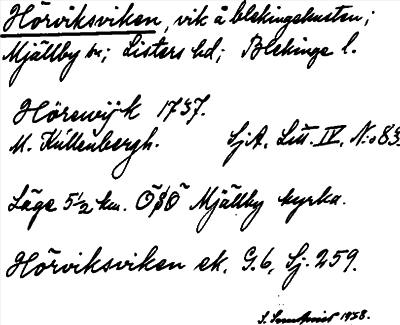 Hörviksviken, vik å blekingekusten;
Mjällby sn; Listers hd; Blekinge l.
Hörewijk 1737.
M. Kullenberg. SjA, Litt. IV, N:o 83.
Läge 5½ km. OSO Mjällby kyrka.
Hörviksviken ek. G.6, Sj. 259.
1938.